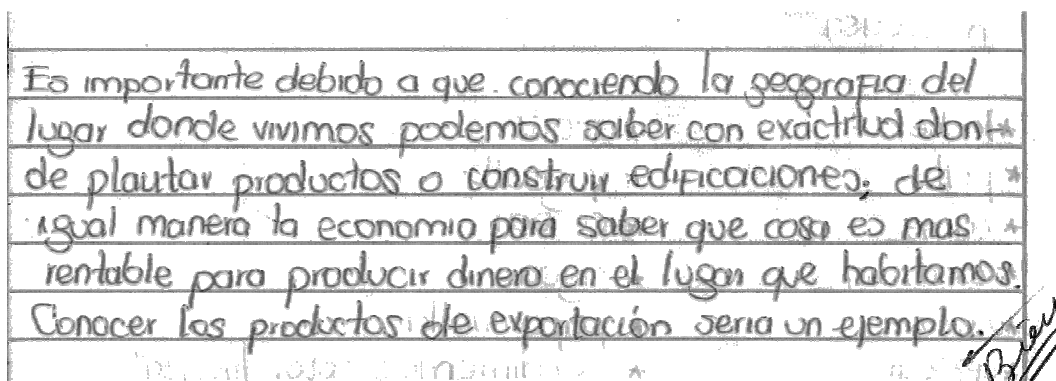 Es importante debido a que conociendo la geografia del
lugar donde vivimos podemos saber con exactitud don-
de plantar productos o construir edificaciones; de
igual manera la economia para saber que cosa es mas
rentable para producir dinero en el lugar que habitamos.
Conocer los productos de exportación seria un ejemplo.
Bien